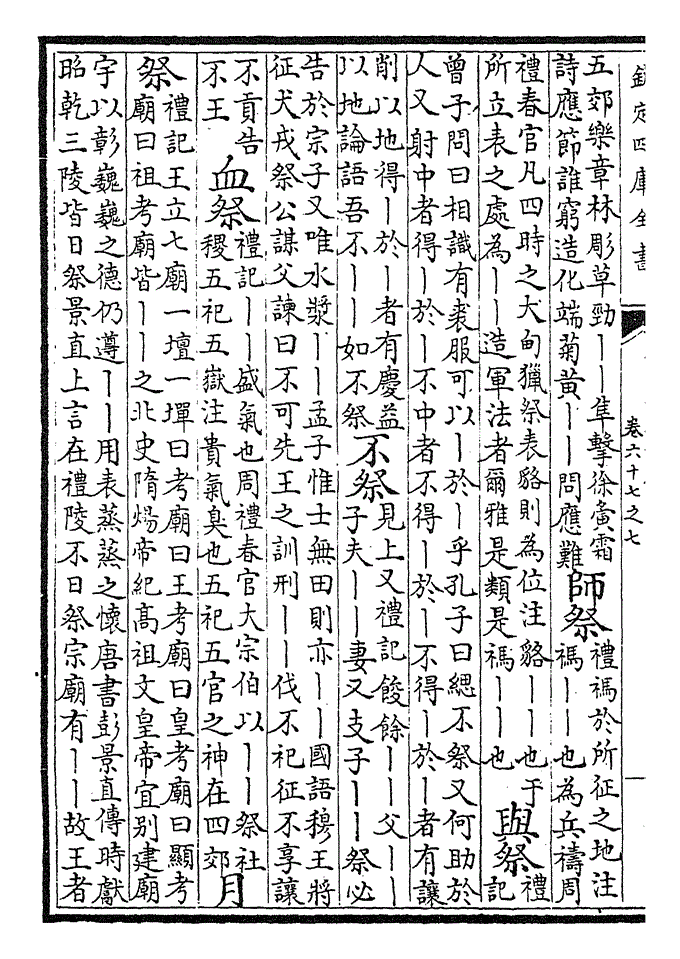 欽定四庫全書
卷六十七之七
五郊樂章林彫草勁丨丨隼擊徐夤霜
詩應節誰窮造化端菊黄丨丨問應難
師祭
禮禡於所征之地注
禡丨丨也為兵禱周
禮春官凡四時之大甸獵祭表貉則為位注貉丨丨也于
所立表之處為丨丨造軍法者爾雅是類是禡丨丨也
與祭
禮
記
曾子問曰相識有喪服可以丨於丨乎孔子曰緦不祭又何助於
人又射中者得丨於丨不中者不得丨於丨不得丨於丨者有讓
削以地得丨於丨者有慶益
以地論語吾不丨丨如不祭
不祭
見上又禮記餕餘丨丨父丨丨
子夫丨丨妻又支子丨丨祭必
告於宗子又唯水漿丨丨孟子惟士無田則亦丨丨國語穆王將
征犬戎祭公謀父諫曰不可先王之訓刑丨丨伐不祀征不享讓
不貢告
不王
血祭
禮記丨丨盛氣也周禮春官大宗伯以丨丨祭社
稷五祀五嶽注貴氣臭也五祀五官之神在四郊
月
祭
禮記王立七廟一壇一墠曰考廟曰王考廟曰皇考廟曰顯考
廟曰祖考廟皆丨丨之北史隋煬帝紀高祖文皇帝宜别建廟
宇以彰巍巍之德仍遵丨丨用表蒸蒸之懷唐書彭景直傳時獻
昭乾三陵皆日祭景直上言在禮陵不日祭宗廟有丨丨故王者